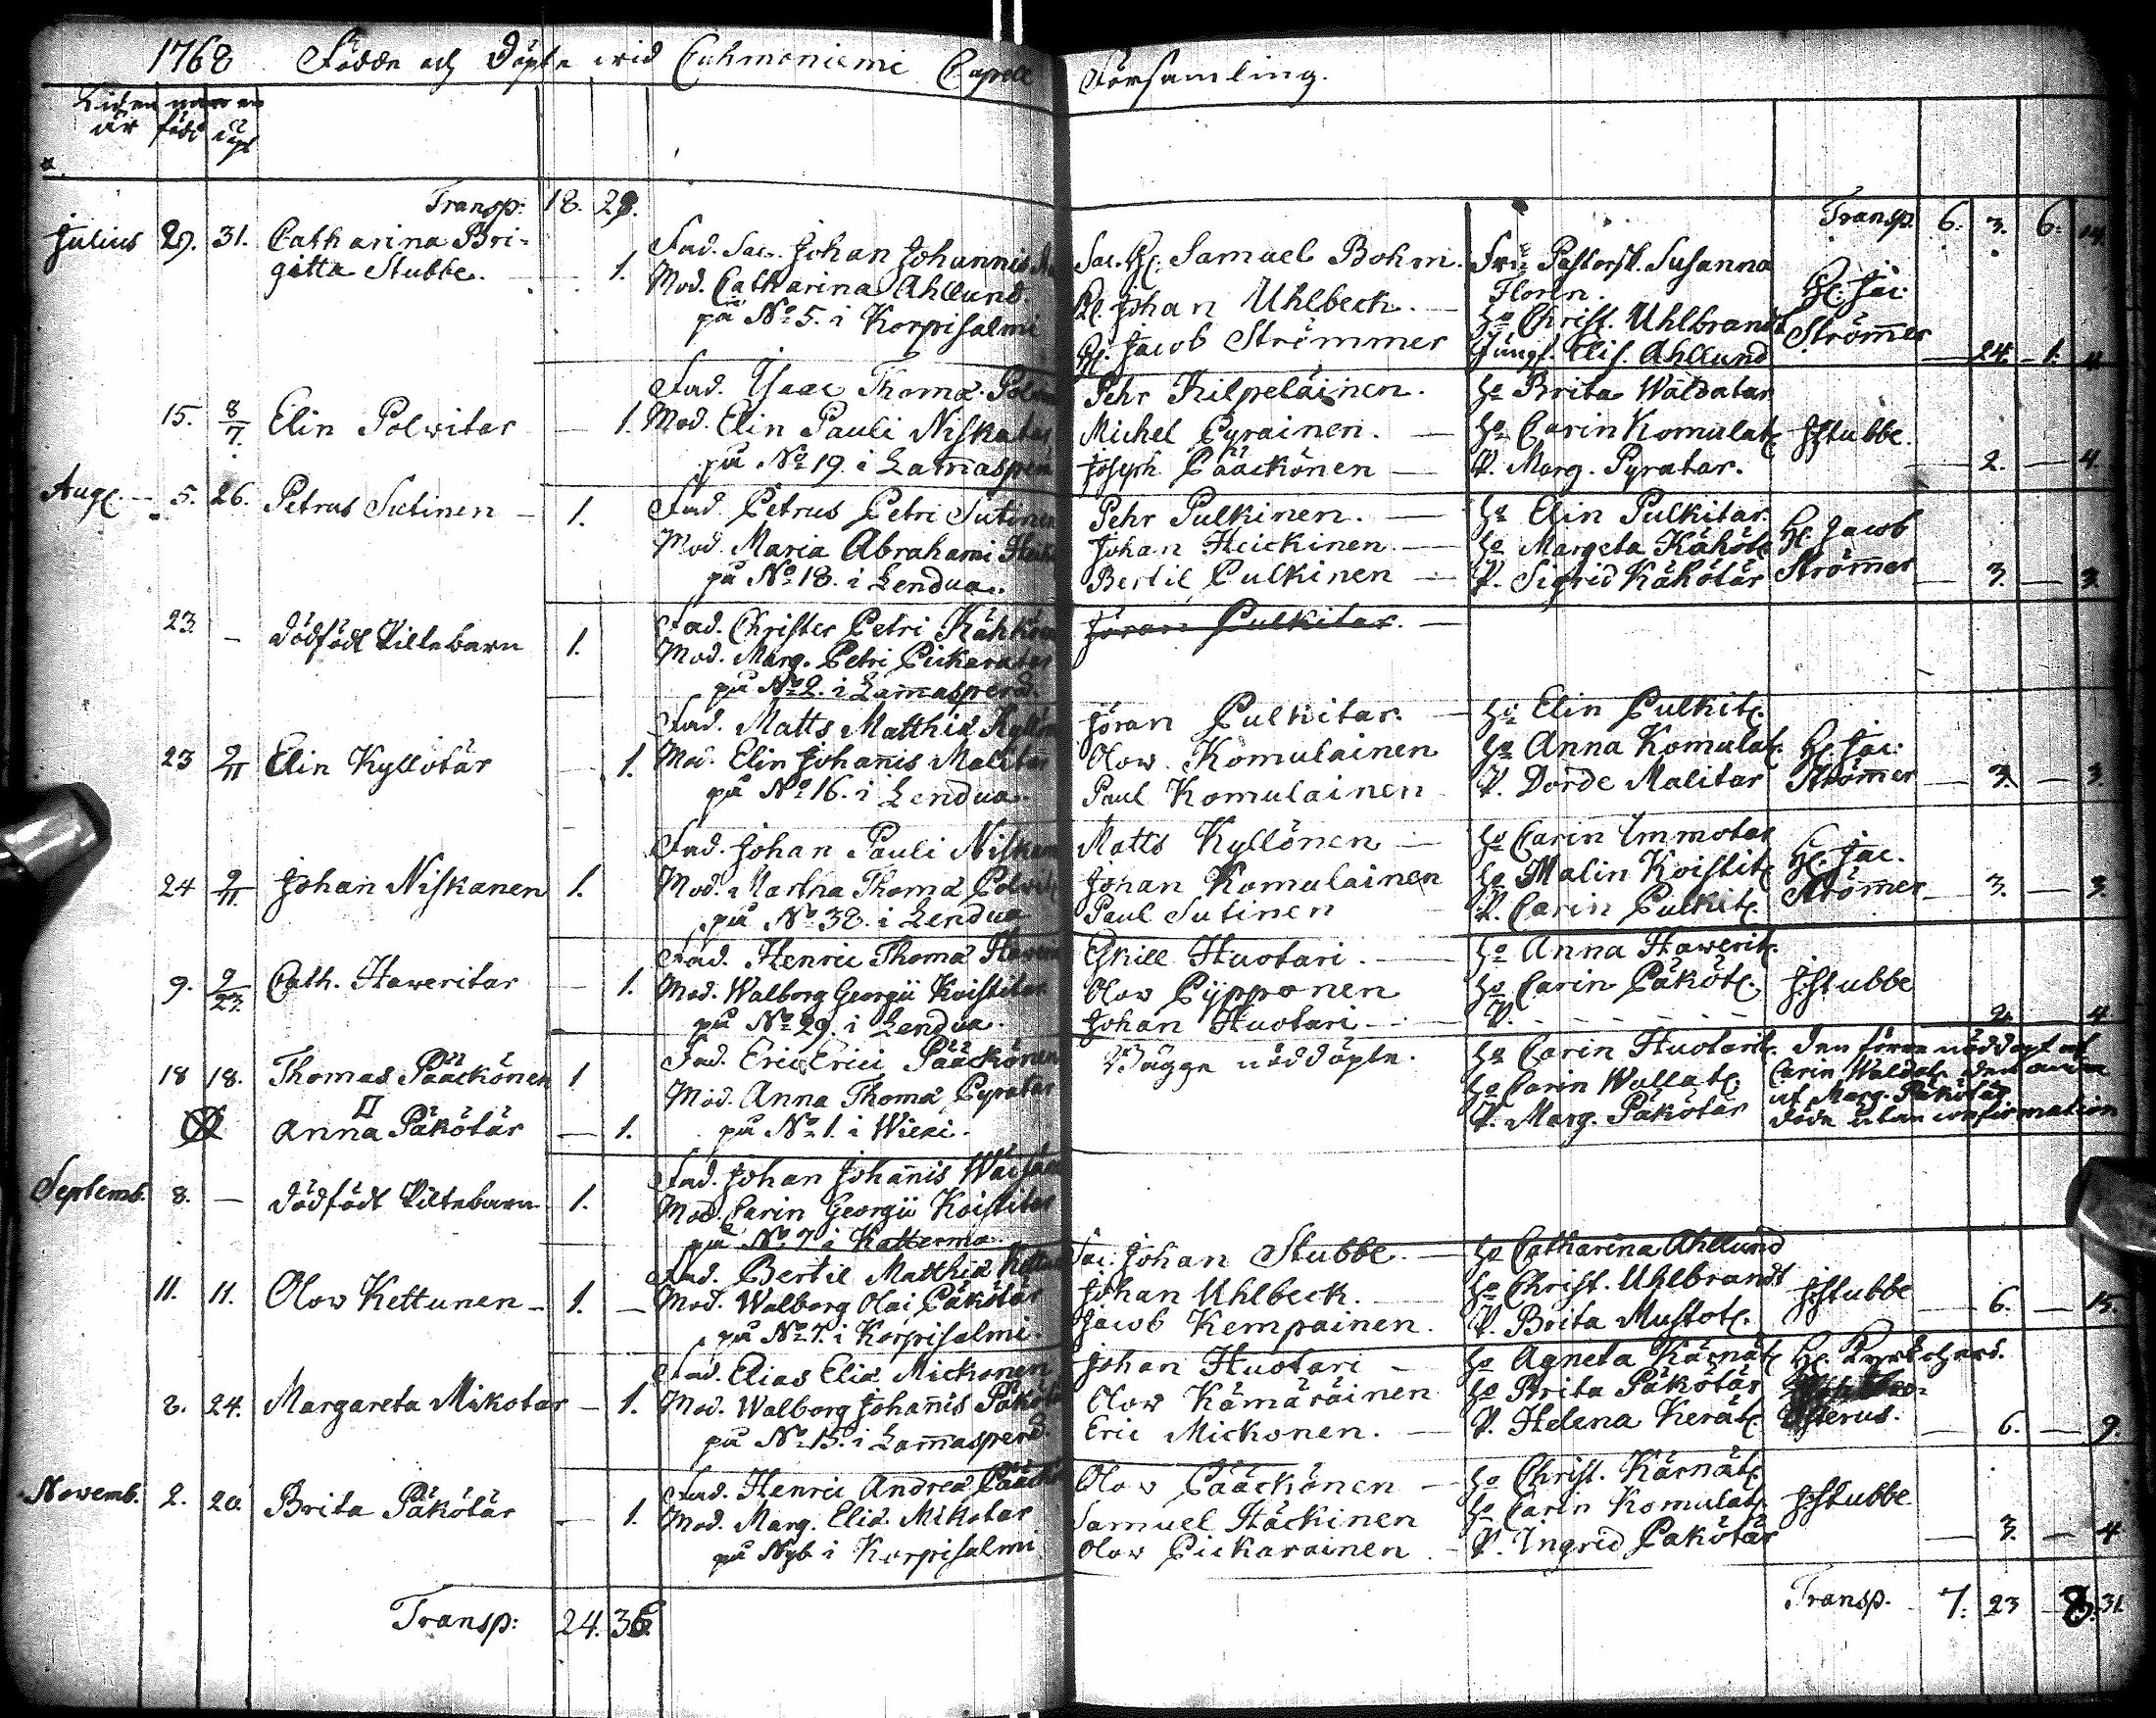 1768 Födde och Döpte wid Cuhmoniemi Capell Församling.
Tiden når en
är född döpt
Transp: 18. 29.
Transp. 6. 3. 6. 14.
Julius 29. 31. Catharina Bri-
gitta Stubbe. 1.
Fad. Sac. Johan Johannis
Mod. Catharina Ahllund.
på No 5. i Korpisalmi
Sac. Hr. Samuel Bohm.
Hr. Johan Uhlbeck.
Hr. Jacob Strömmer
Fru Pastorsk. Susanna
Floren.
Ho Christ. Uhlbrandt
Jungf. Elis. Ahllund
Hr. Jac.
Strömer 24. 1. 4.
15. 8/7 Elin Polvitar 1.
Fad. Isaac Thomæ
Mod. Elin Pauli Niskatar
på No 19. i Lamasperä
Pehr Kilpeläinen.
Michel Pyrainen.
Joseph Pääckönen
Ho Brita Wäldatar
Ho Carin Komulat.
P. Marg. Pyratar.
J. Stubbe. 2. 4.
Aug. 5. 26. Petrus Sutinen 1.
Fad. Petrus Petri Sutinen
Mod. Maria Abrahami
på No 18. i Lendua.
Pehr Pulkinen.
Johan Heickinen.
Bertil Pulkinen
Ho Elin Pulkitar
Ho Margeta Kähöt.
P. Sigrid Kähötär
Hr. Jacob
Strömer 3. 3.
23. - dödfödt Piltebarn 1.
Fad. Christer Petri
Mod. Marg. Petri Pickaratar
på No 2. i Lamasperä.
Jöran Pulkitar.
23 2/11 Elin Kyllötär 1.
Fad. Matts Matthiæ
Mod. Elin Johanis Malitar
på No 16. i Lendua.
Jöran Pulkitar.
Olow Komulainen
Paul Komulainen
Ho Elin Pulkit.
Ho Anna Komulat.
P. Dorde Malitar
Hr. Jac.
Strömer 3. 3.
24 9/11. Johan Niskanen 1.
Fad. Johan Pauli
Mod. Martha Thomæ
på No 38. i Lendua
Matts Kyllönen
Johan Komulainen
Paul Sutinen
Ho Carin Immotar
Ho Malin Koistit.
P. Carin Pulkit.
Hr. Jac.
Strömer 3. 3.
9. 9/23. Cath. Haweritar 1.
Fad. Henric Thomæ
Mod. Walborg Georgii Koistitar
på No 29. i Lendua.
Eskill Huotari.
Olow Pypponen
Johan Huotari
Ho Anna Hawerit.
Ho Carin Päköt.
P. - - - - -
J. Stubbe 2. 4
18 18. Thomas Pääckönen 1
II
Anna Päkötär 1.
Fad. Eric Erici Pääckönen
Mod. Anna Thomæ Pyratar
på No 1. i Wieki.
Bägge nöddöpte.
Ho Carin Huotarit.
Ho Carin Wallat.
P. Marg. Päkötär
den förra nöddöpt af
Carin Waldat. den andra
af Marg. Päkötär
döde utan confirmation
Septemb. 8. - dödfödt Piltebarn 1.
Fad. Johan Johanis
Mod. Carin Georgii Koistitar
på No 7 i Katterma.
11. 11. Olow Kettunen 1.
Fad. Bertil Matthiæ
Mod. Walborg Olai Päkötär
på No 7. i Korpisalmi.
Sac. Johan Stubbe.
Johan Uhlbeck.
Jacob Kempainen.
Ho Catharina Ahllund
Ho Christ. Uhlbrandt
P. Brita Mustot.
J. Stubbe 6. 15.
8. 24. Margareta Mikotar 1.
Fad. Elias Eliæ Mickonen
Mod. Walborg Johanis
på No 15. i Lamasperä.
Johan Huotari
Olow Kämäräinen
Eric Mickonen.
Ho Agneta Kärnät.
Ho Brita Päkötär
P. Helena Kerät.
Hr. Kyrkoherd.
6. 9.
Novemb. 2. 20. Brita Päkötär 1.
Fad. Henric Andreæ
Mod. Marg. Eliæ Mikotar
på Nyb. i Korpisalmi
Olow Pääckönen
Samuel Häckinen
Olow Pickarainen
Ho Christ. Kärnät.
Ho Carin Komulat.
P. Ingrid Pakötär
J. Stubbe 3. 4
Transp: 24. 36.
Transp. 7. 23 8. 31.